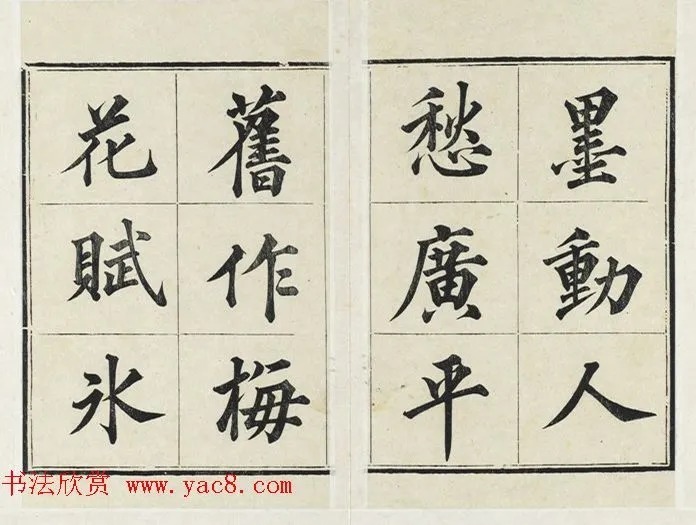 墨動人
愁廣平
舊作梅
花賦氷
书法欣赏 www.yac8.com